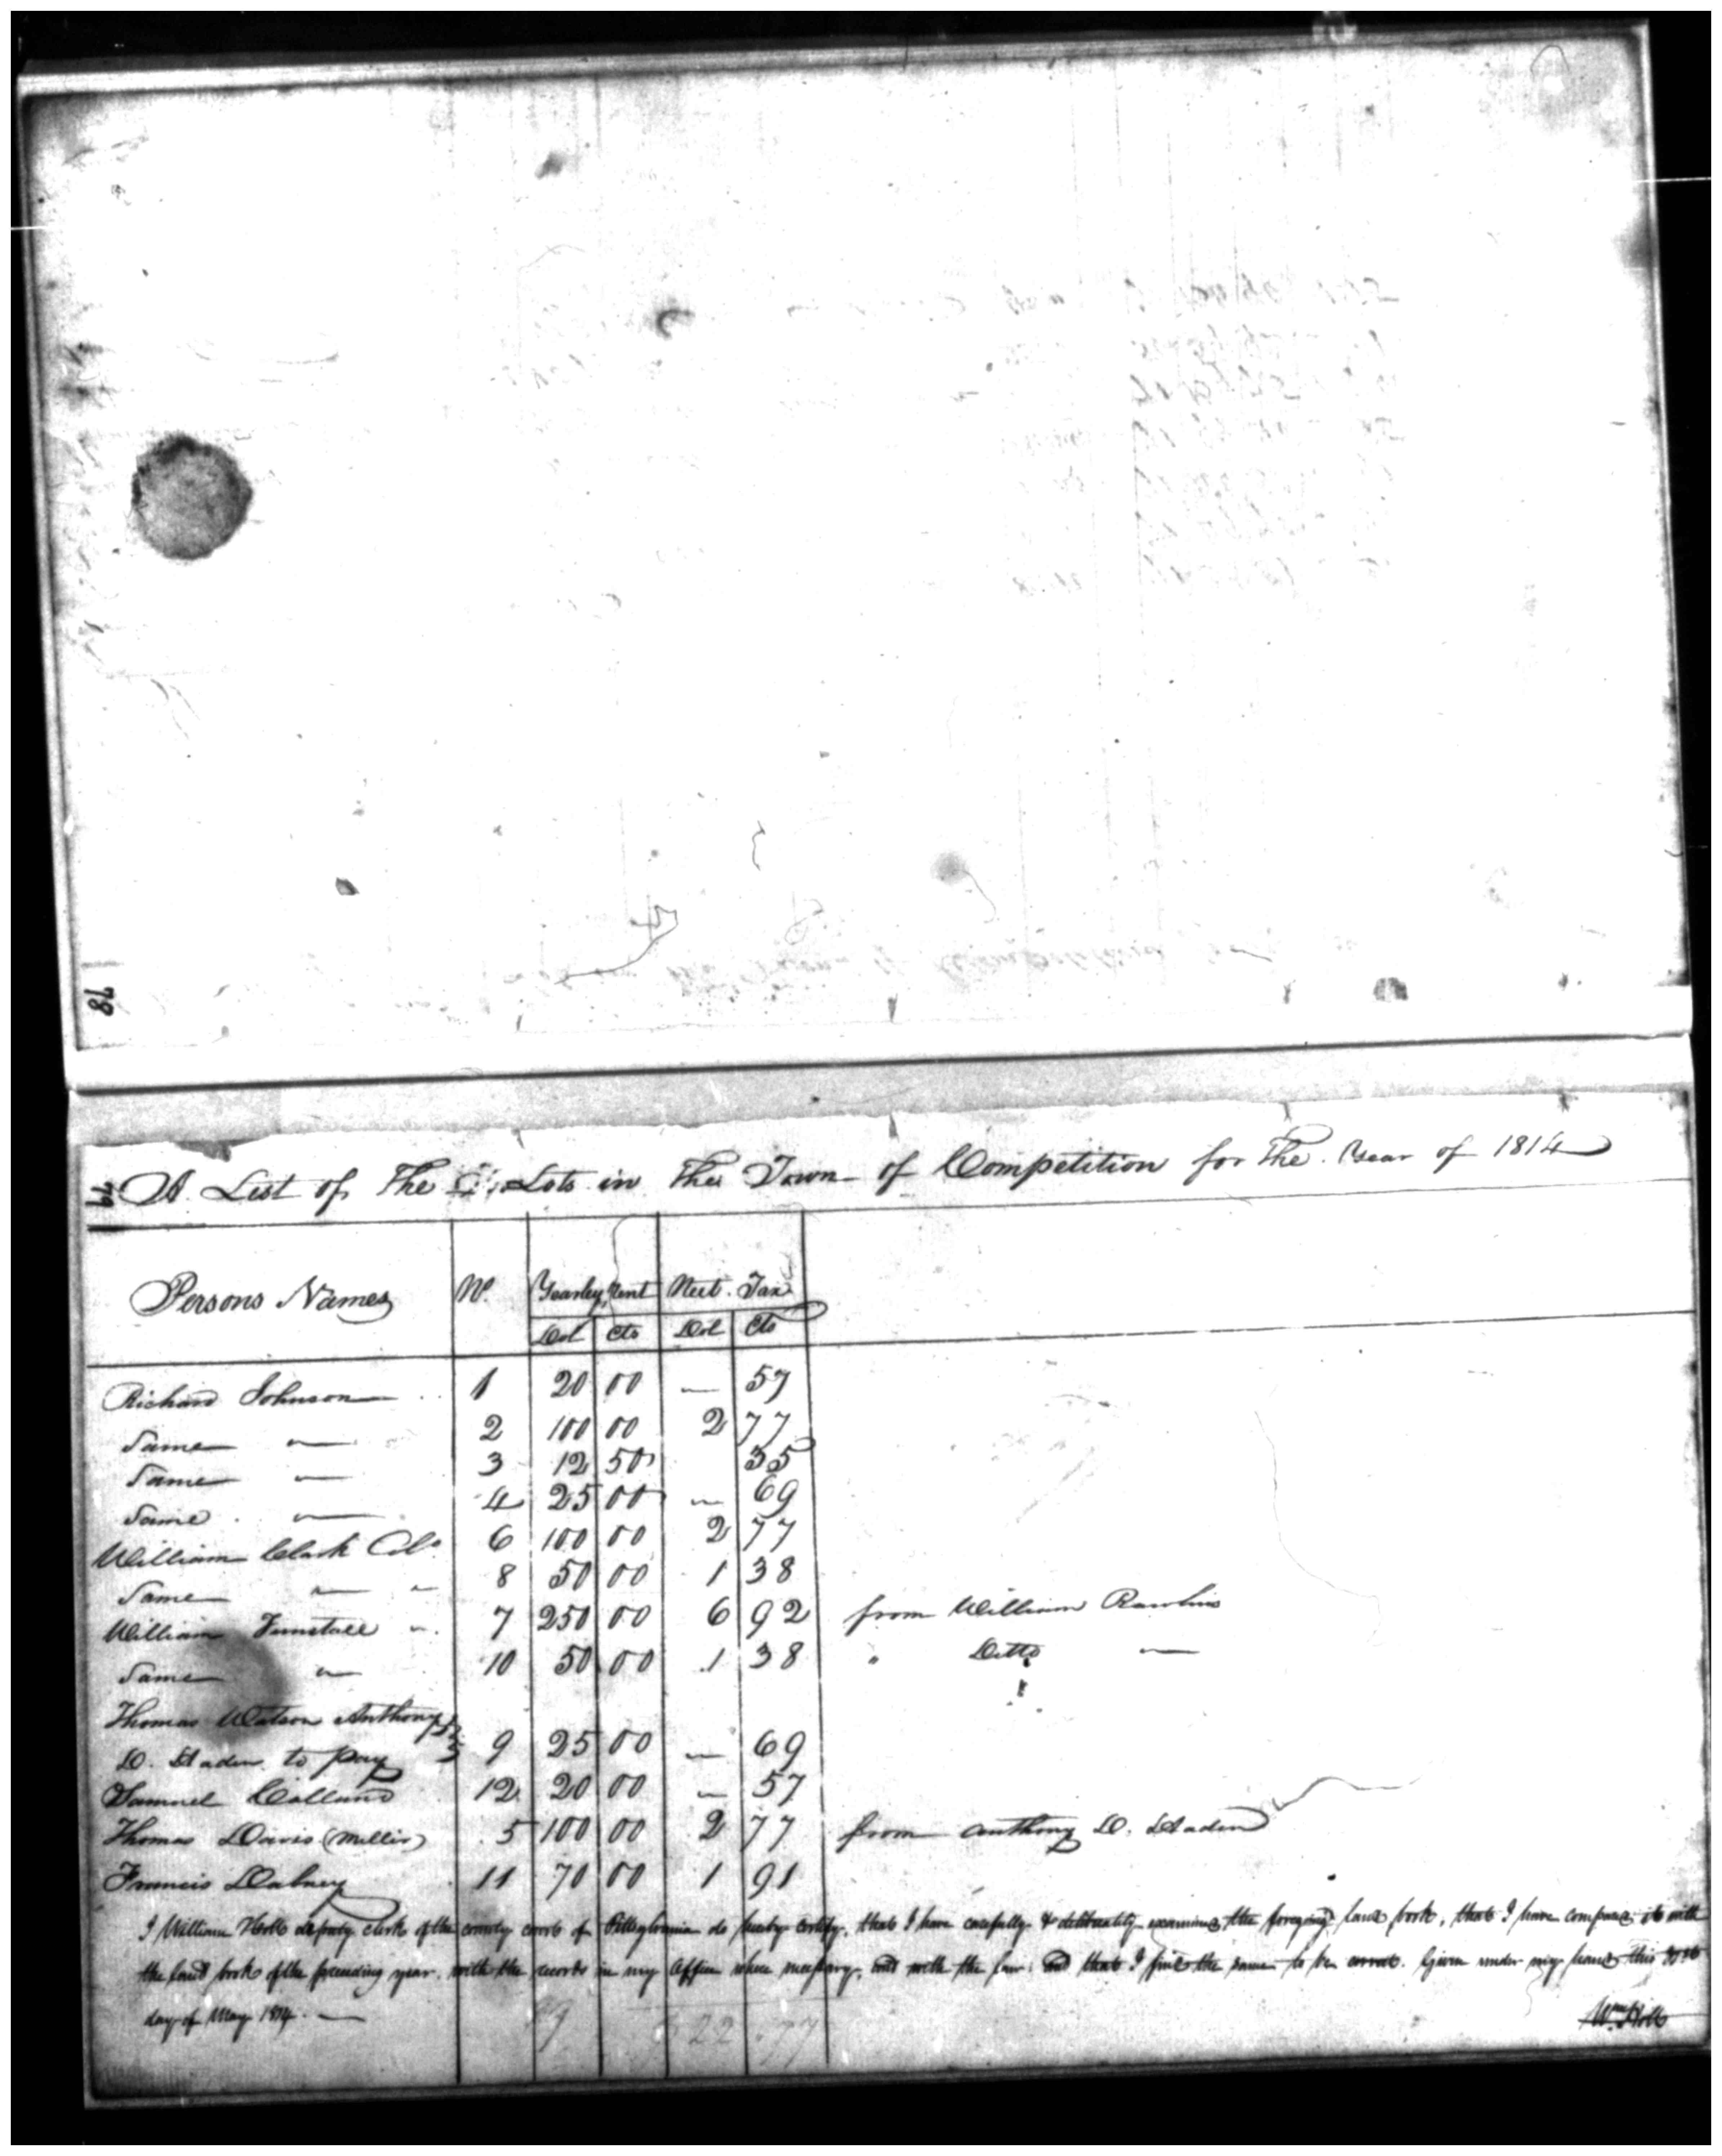 78
79
A List of the Lots in the Town of Competition for the Year of 1814
Persons Names No. Yearley Rent Neet. Tax
Dol Cts Dol Cts
Richard Johnson 1 20 00 — 57
Same — 2 100 00 2 77
Same — 3 12 50 35
Same — 4 25 00 — 69
William Clark 6 100 00 2 77
Same — 8 50 00 1 38
William Tunstall 7 250 00 6 92 from William Rawlins
Same 10 50 00 1 38 " Ditto —
Thomas Watson Anthony
D. Haden to pay 9 25 00 — 69
Samuel Calland 12 20 00 — 57
Thomas Davis (Miller) 5 100 00 2 77 from Anthony D. Haden
Francis Dabney 11 70 00 1 91
I William Holt deputy clerk of the county court of Pittsylvania do hereby certify, that I have carefully & examined the land book, that I have compared it with
the land book of the preceding year, with the records in my office where necessary, and with the law and that I find the same to be correct. Given under my hand this
day of May 1814. —
22.77
Wm Holt